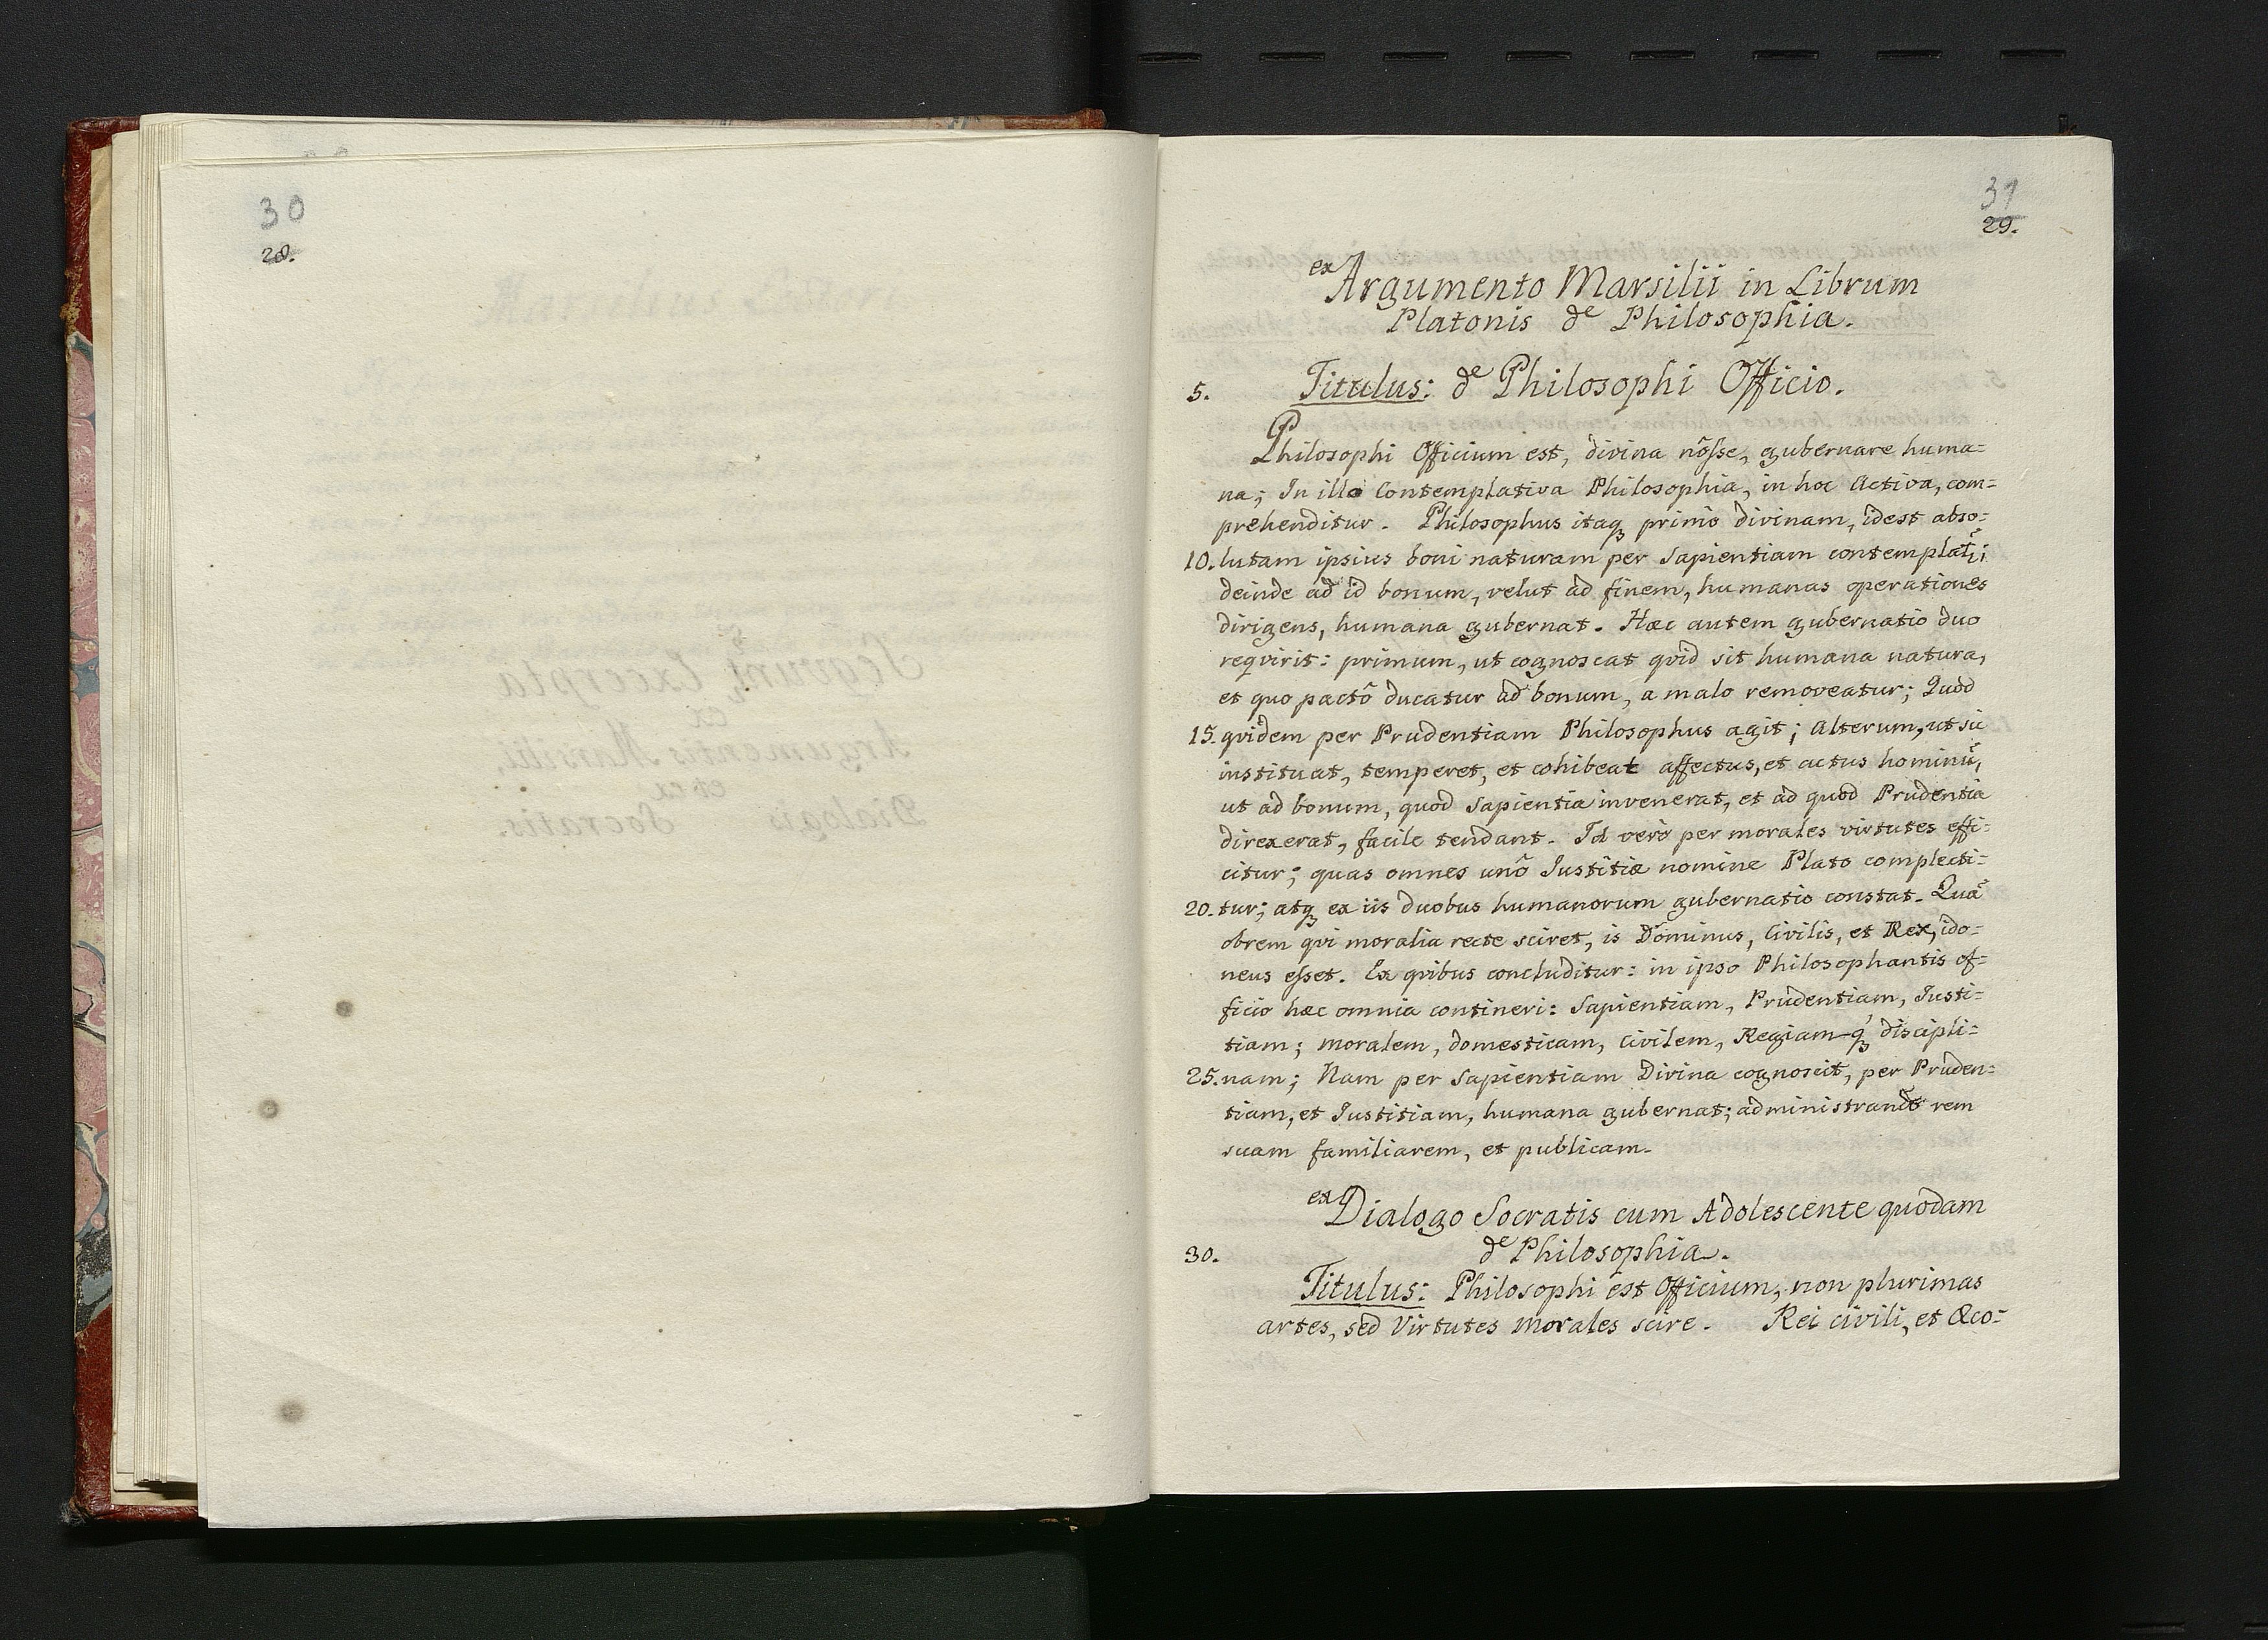 30
28.
31
29.
ex Argumento Marsilii in Librum
Platonis de Philosophia.
5. Titulus: de Philosophi Officio.
Philosophi Officium est, divina nôsse, gubernare huma=
na; In illo Contemplativa Philosophia, in hoc Activa, com=
prehenditur. Philosophus itaqꝫ primò divinam, idest abso=
10. lutam ipsius boni naturam per Sapientiam contemplat̃;
deinde ad id bonum, velut ad finem, humanas operationes
dirigens, humana gubernat. Hæc autem gubernatio duo
reqvirit: primum, ut cognoscat qvid sit humana natura,
et quo pactô ducatur ad bonum, a malo removeatur; Quod
15. qvidem per Prudentiam Philosophus agit; Alterum, ut sic
instituat, temperet, et cohibeat affectus, et actus hominũ,
ut ad bonum, quod Sapientia invenerat, et ad quod Prudentia
direxerat, facile tendant. Id verò per morales virtutes effi=
citur; quas omnes unô Iustitiæ nomine Plato complecti=
20. tur; atqꝫ ex iis duobus humanorum gubernatio constat. Quã
obrem qvi moralia recte sciret, is Dominus, Civilis, et Rex, ido=
neus esset. Ex qvibus concluditur: in ipso Philosophantis of=
ficio hæc omnia contineri: Sapientiam, Prudentiam, Iusti=
tiam; moralem, domesticam, Civilem, Regiam-qꝫ discipli=
25. nam; Nam per Sapientiam Divina cognoscit, per Pruden=
tiam, et Iustitiam, humana gubernat; administrandô rem
suam familiarem, et publicam.
ex Dialogo Socratis cum Adolescente quodam
30. de Philosophia.
Titulus: Philosophi est Officium, non plurimas
artes, sed Virtutes Morales scire. Rei civili, et Œco=